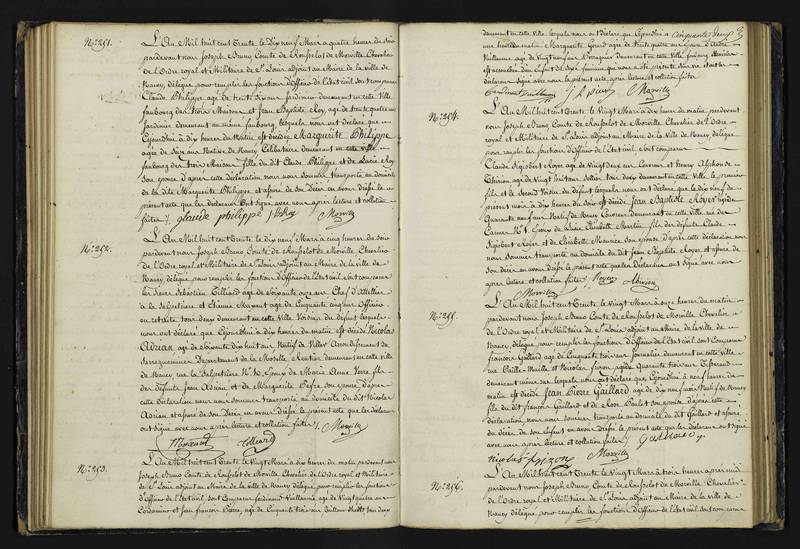 No. 251.
L'An Mil huit cent Trente le Dix neuf Mars à quatre heures du soir
pardevant nous Joseph Bruno Comte de Rousselot de Morville Chevalier
de l'Ordre royal et Militaire de St. Louis adjoint au Maire de la ville de
Nancy, délégué pour remplir les fonctions d'Officier de l'Etat civil sont comparus
Claude Philippe âgé de trente dix ans Jardinier demeurant en cette Ville
faubourg des trois Maisons et Jean Baptiste Roy, âgé de trente quatre ans
Jardinier demeurant au même faubourg, lesquels nous ont déclaré que
Cejourdhui à dix heures du Matin est décédée Marguerite Philippe
âgée de Six ans Native de Nancy Célibataire demeurant en cette ville
faubourg des trois Maisons fille du dit Claude Philippe et de Lucie Roy
Son épouse d'après cette déclaration nous nous sommes transporté au domicile
de la dite Marguerite Philippe et assuré de Son Décès en avons dressé le
présent acte que les déclarans Ont signé avec nous après lecture et collation
faites /. glaude philippe JBRoy Morville
No. 252.
L'An Mil huit cent Trente le Dix neuf Mars à cinq heures du soir
pardevant nous Joseph Bruno Comte de Rousselot de Morville Chevalier
de l'Ordre royal et Militaire de St. Louis adjoint au Maire de la ville de
Nancy, délégué pour remplir les fonctions d'Officier de l'Etat civil sont comparus
les Sieurs Sébastien Colliard âgé de Soixante onze ans Chef d'Attelier
à la Salpétrière et Etienne Mayaut âgé de Cinquante cinq ans Officier
en retraite tous deux demeurant en cette Ville Voisins du défunt lesquels
nous ont déclaré que Cejourdhui à dix heures du matin est décédé Nicolas
Adrian âgé de Soixante dix huit ans Natif de Viller Arrondissement de
Sarreguemines Département de la Moselle Rentier demeurant en cette ville
de Nancy rue la Salpétrière No. 10. Epoux de Marie Anne Verre fils
des défunts Jean Adrian et de Marguerite Pefre son épouse d'après
cette déclaration nous nous sommes transporté au domicile du dit Nicolas
Adrian et assuré de Son Décès, en avons dressé le présent acte que les déclarans
Ont signé avec nous après lecture et collation faites /. Morville
Colliard
No. 253.
L'An Mil huit cent Trente le Vingt Mars à dix heures du matin pardevant nous
Joseph Bruno Comte de Rousselot de Morville Chevalier de l'Ordre royal et Militaire
de St. Louis adjoint au Maire de la ville de Nancy délégué pour remplir les fonctions
d'Officier de l'Etat civil sont Comparus Ferdinand Vuillaume âgé de Vingt quatre ans
Cordonnier et Jean François Pierre, âgé de Cinquante trois ans tous deux
demeurant en cette Ville lesquels nous ont déclaré que Cejourdhui à cinquante deux
une heure du matin Marguerite Girard âgée de trente quatre ans épouse d'André
Vuillaume âgé de Vingt neuf ans demeurant en cette Ville
est accouchée d'un Enfant du Sexe féminin qui nous a été présenté Sans vie et ont les
déclarans signé avec nous le présent acte après lecture et collation faites
Ferdinand Vuillaume J f Pierre Morville
No. 254.
L'An Mil huit cent Trente le Vingt Mars à dix heures du matin pardevant
nous Joseph Bruno Comte de Rousselot de Morville Chevalier de l'Ordre
royal et Militaire de St. Louis adjoint au Maire de la Ville de Nancy, délégué
pour remplir les fonctions d'Officier de l'Etat civil, sont comparus
Claude Sigisbert Royer âgé de Vingt deux ans et Henry Alphonse
Thirion âgé de Vingt huit ans Sellier tous deux demeurant en cette Ville, le premier
fils et le Second Voisin du défunt lesquels nous ont déclaré que le dix neuf du
présent mois à dix heures du soir est décédé Jean Baptiste Royer âgé de
Quarante neuf ans Natif de Nancy demeurant en cette Ville rue des
Carmes No. 1. Epoux de Marie Elisabeth Martin fils des défunts Claude
Sigisbert Royer et de Elisabeth Maurice Son épouse d'après cette déclaration nous
nous sommes transporté au domicile du dit Jean Baptiste Royer et assuré de
Son décès en avons dressé le présent acte que les déclarans Ont signé avec nous
après lecture et collation faites /. Royer Thirion
Morville
No. 255.
L'An Mil huit cent Trente le Vingt Mars à onze heures du matin
pardevant nous Joseph Bruno Comte de Rousselot de Morville Chevalier
de l'Ordre royal et Militaire de St. Louis adjoint au Maire de la ville de
Nancy, délégué pour remplir les fonctions d'Officier de l'Etat civil, sont Comparus
François Gaillard âgé de Cinquante trois ans Journalier demeurant en cette Ville
rue Vieille Muraille et Nicolas Suzon, âgé de Quarante trois ans Tisserand
demeurant même rue lesquels nous ont déclaré que Cejourdhui à neuf heures du
matin est décédé Jean Pierre Gaillard âgé de dix neuf mois Natif de Nancy
fils du dit François Gaillard et de Rose Paulet Son épouse d'après cette
déclaration, nous nous sommes transporté au domicile du dit Gaillard et assuré
du décès de son enfant en avons dressé le présent acte que les déclarans ont signé
avec nous après lecture et collation faites /.
nicolas Morville
No. 256.
L'An Mil huit cent Trente le Vingt Mars à trois heures après midi
pardevant nous Joseph Bruno Comte de Rousselot de Morville Chevalier
de l'Ordre royal et Militaire de St. Louis adjoint au Maire de la ville de
Nancy délégué, pour remplir les fonctions d'Officier de l'Etat civil sont comparus